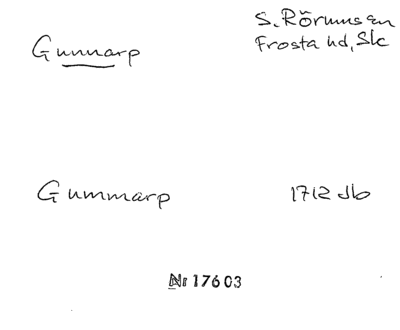 Gunnarp S. Rörums sn
Frosta hd, Sk
Gummarp 1712 Jb
Nr 17603